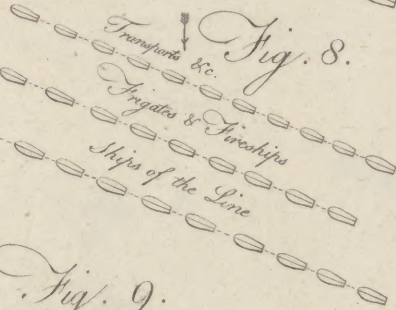 Fig. 8.
Transports &c.
Frigates & Fireships
Ships of the Line
Fig. 9.